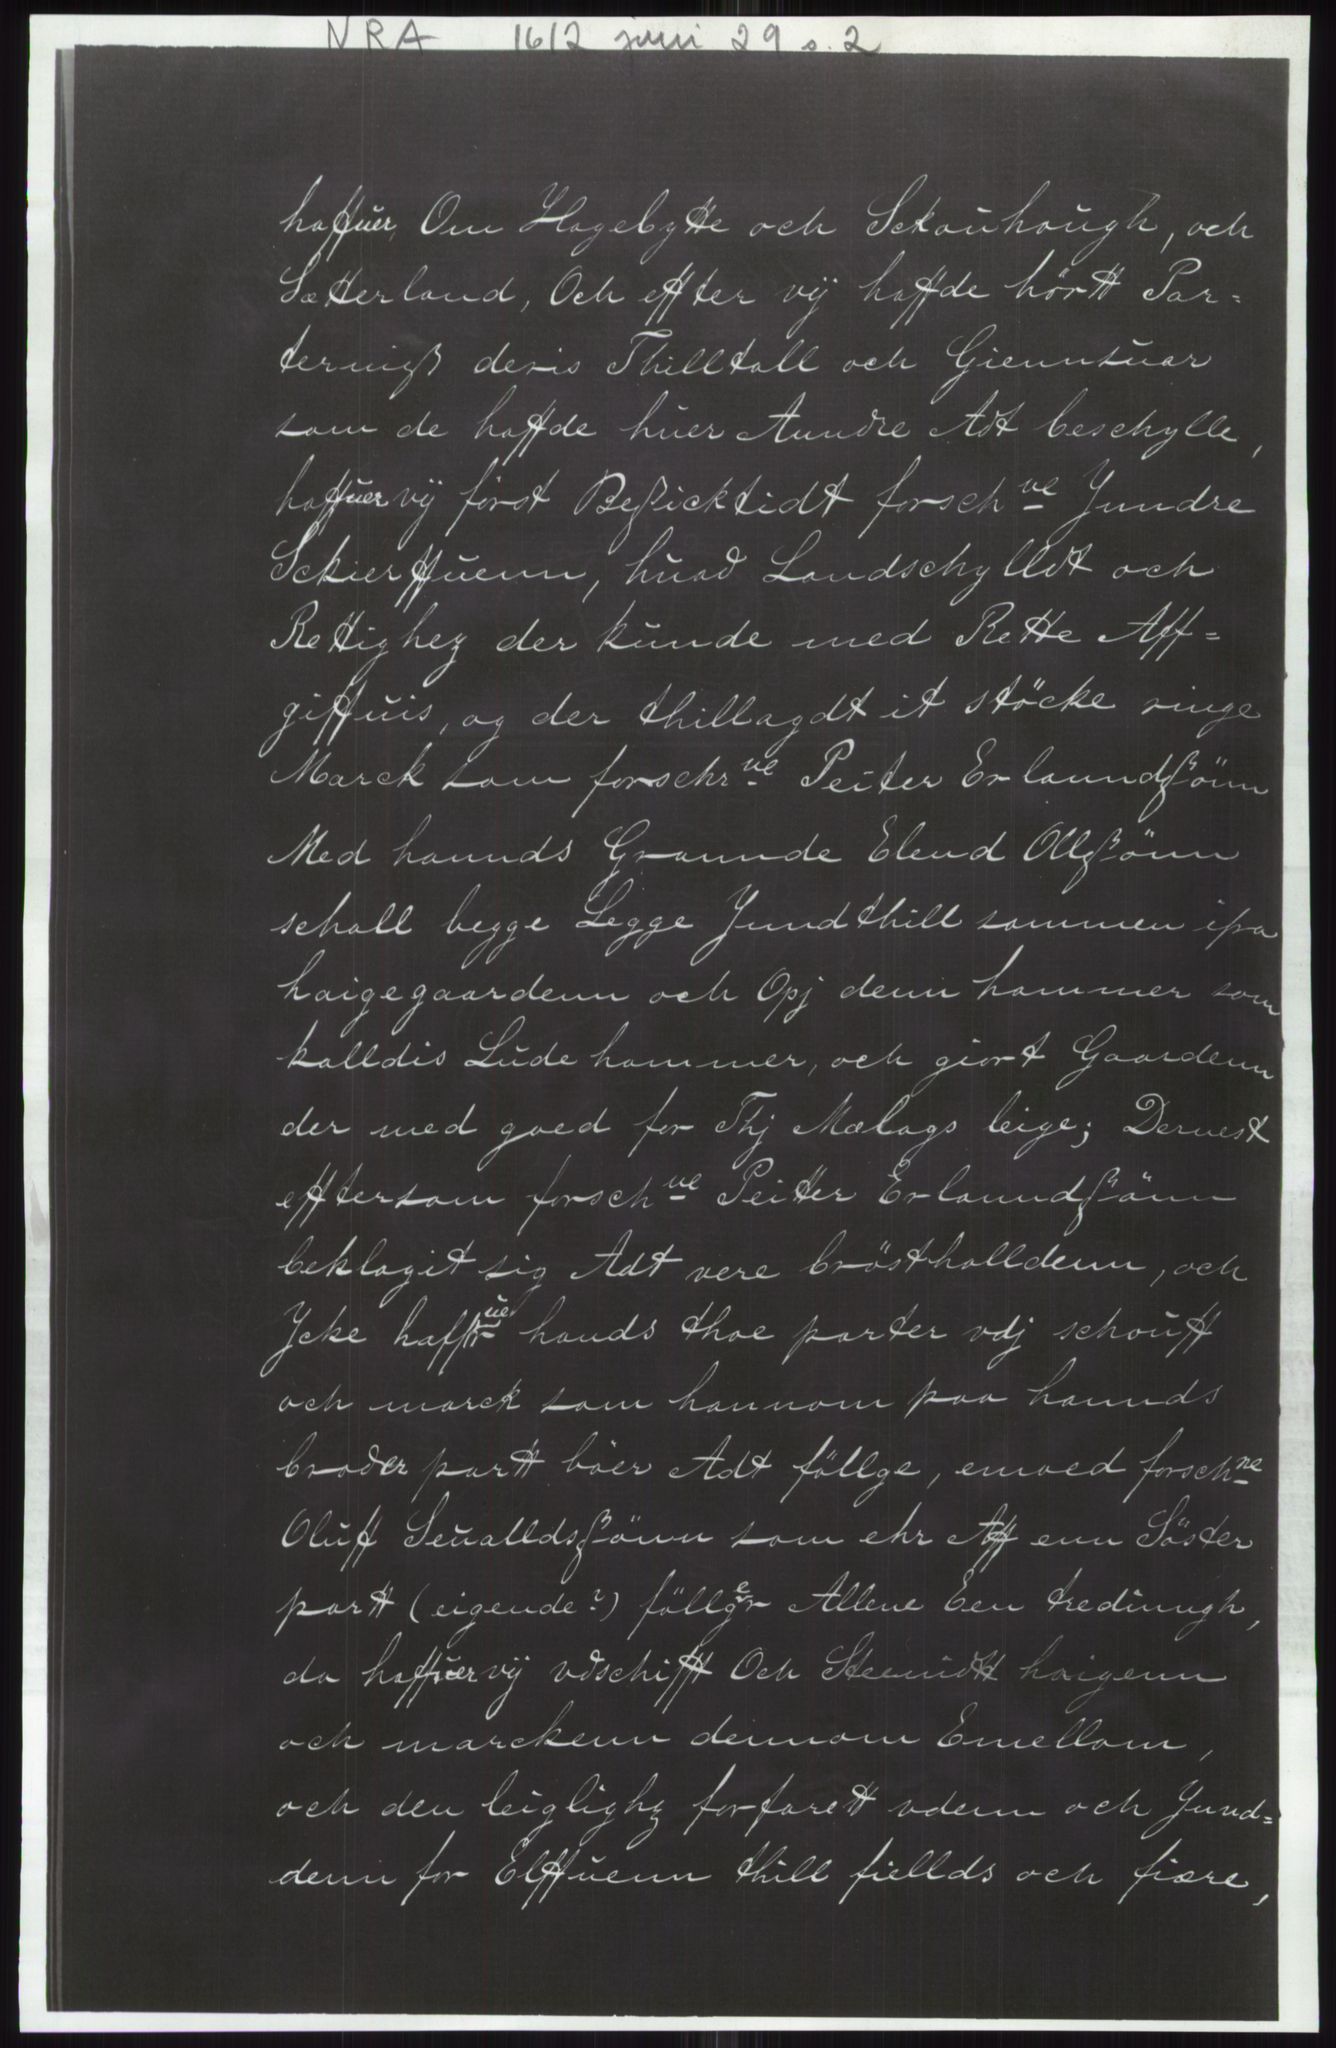 NRA 1612 juni 29 s. 2
haffuer, Om Hagebytte och Sckouhough, och
Sætterland, Och effter vÿ haffde hörtt Par-
ternisß deris Thilltall och Giennsuar
som de haffde huer Aundre Adt beschylle,
haffuer vÿ först Beßicktidt forsch ne Jundre
Sckierffuenn, huad Landschylldt och
Rettighez der kunde med Rette Aff-
giffuis, og der thillagdt it stöcke ringe
Marck som forschr ne Peiter Erlaundsßönn
Med haunds Graunde Elend Ollsßönn
schall begge Legge Jundthill sammen ifra
haigegaardenn och Opj denn hammer som
kalldis Lude hammer, och giort Gaardenn
der med goed for Thj Mælags leige; Dernest
efftersom forsch ne Peitter Erlaundsßönn
beklagit sig Adt vere brösthalldenn, och
Jcke haffue hands thoe parter vdj schouff
och marck som hannom paa haunds
broder partt böer Adt föllge, emoed forsch ne
Oluff Seualldsßönn som ehr Aff enn Söster
partt (eigende?) föllger Allene Een tredinugh,
da haffuer vÿ vdschifft Och Steenidtt haigenn
och marckenn dennom Emellom,
och den leiglighz forfarett vdenn och Jund-
denn for Elffuenn thill fiellds och fiære,